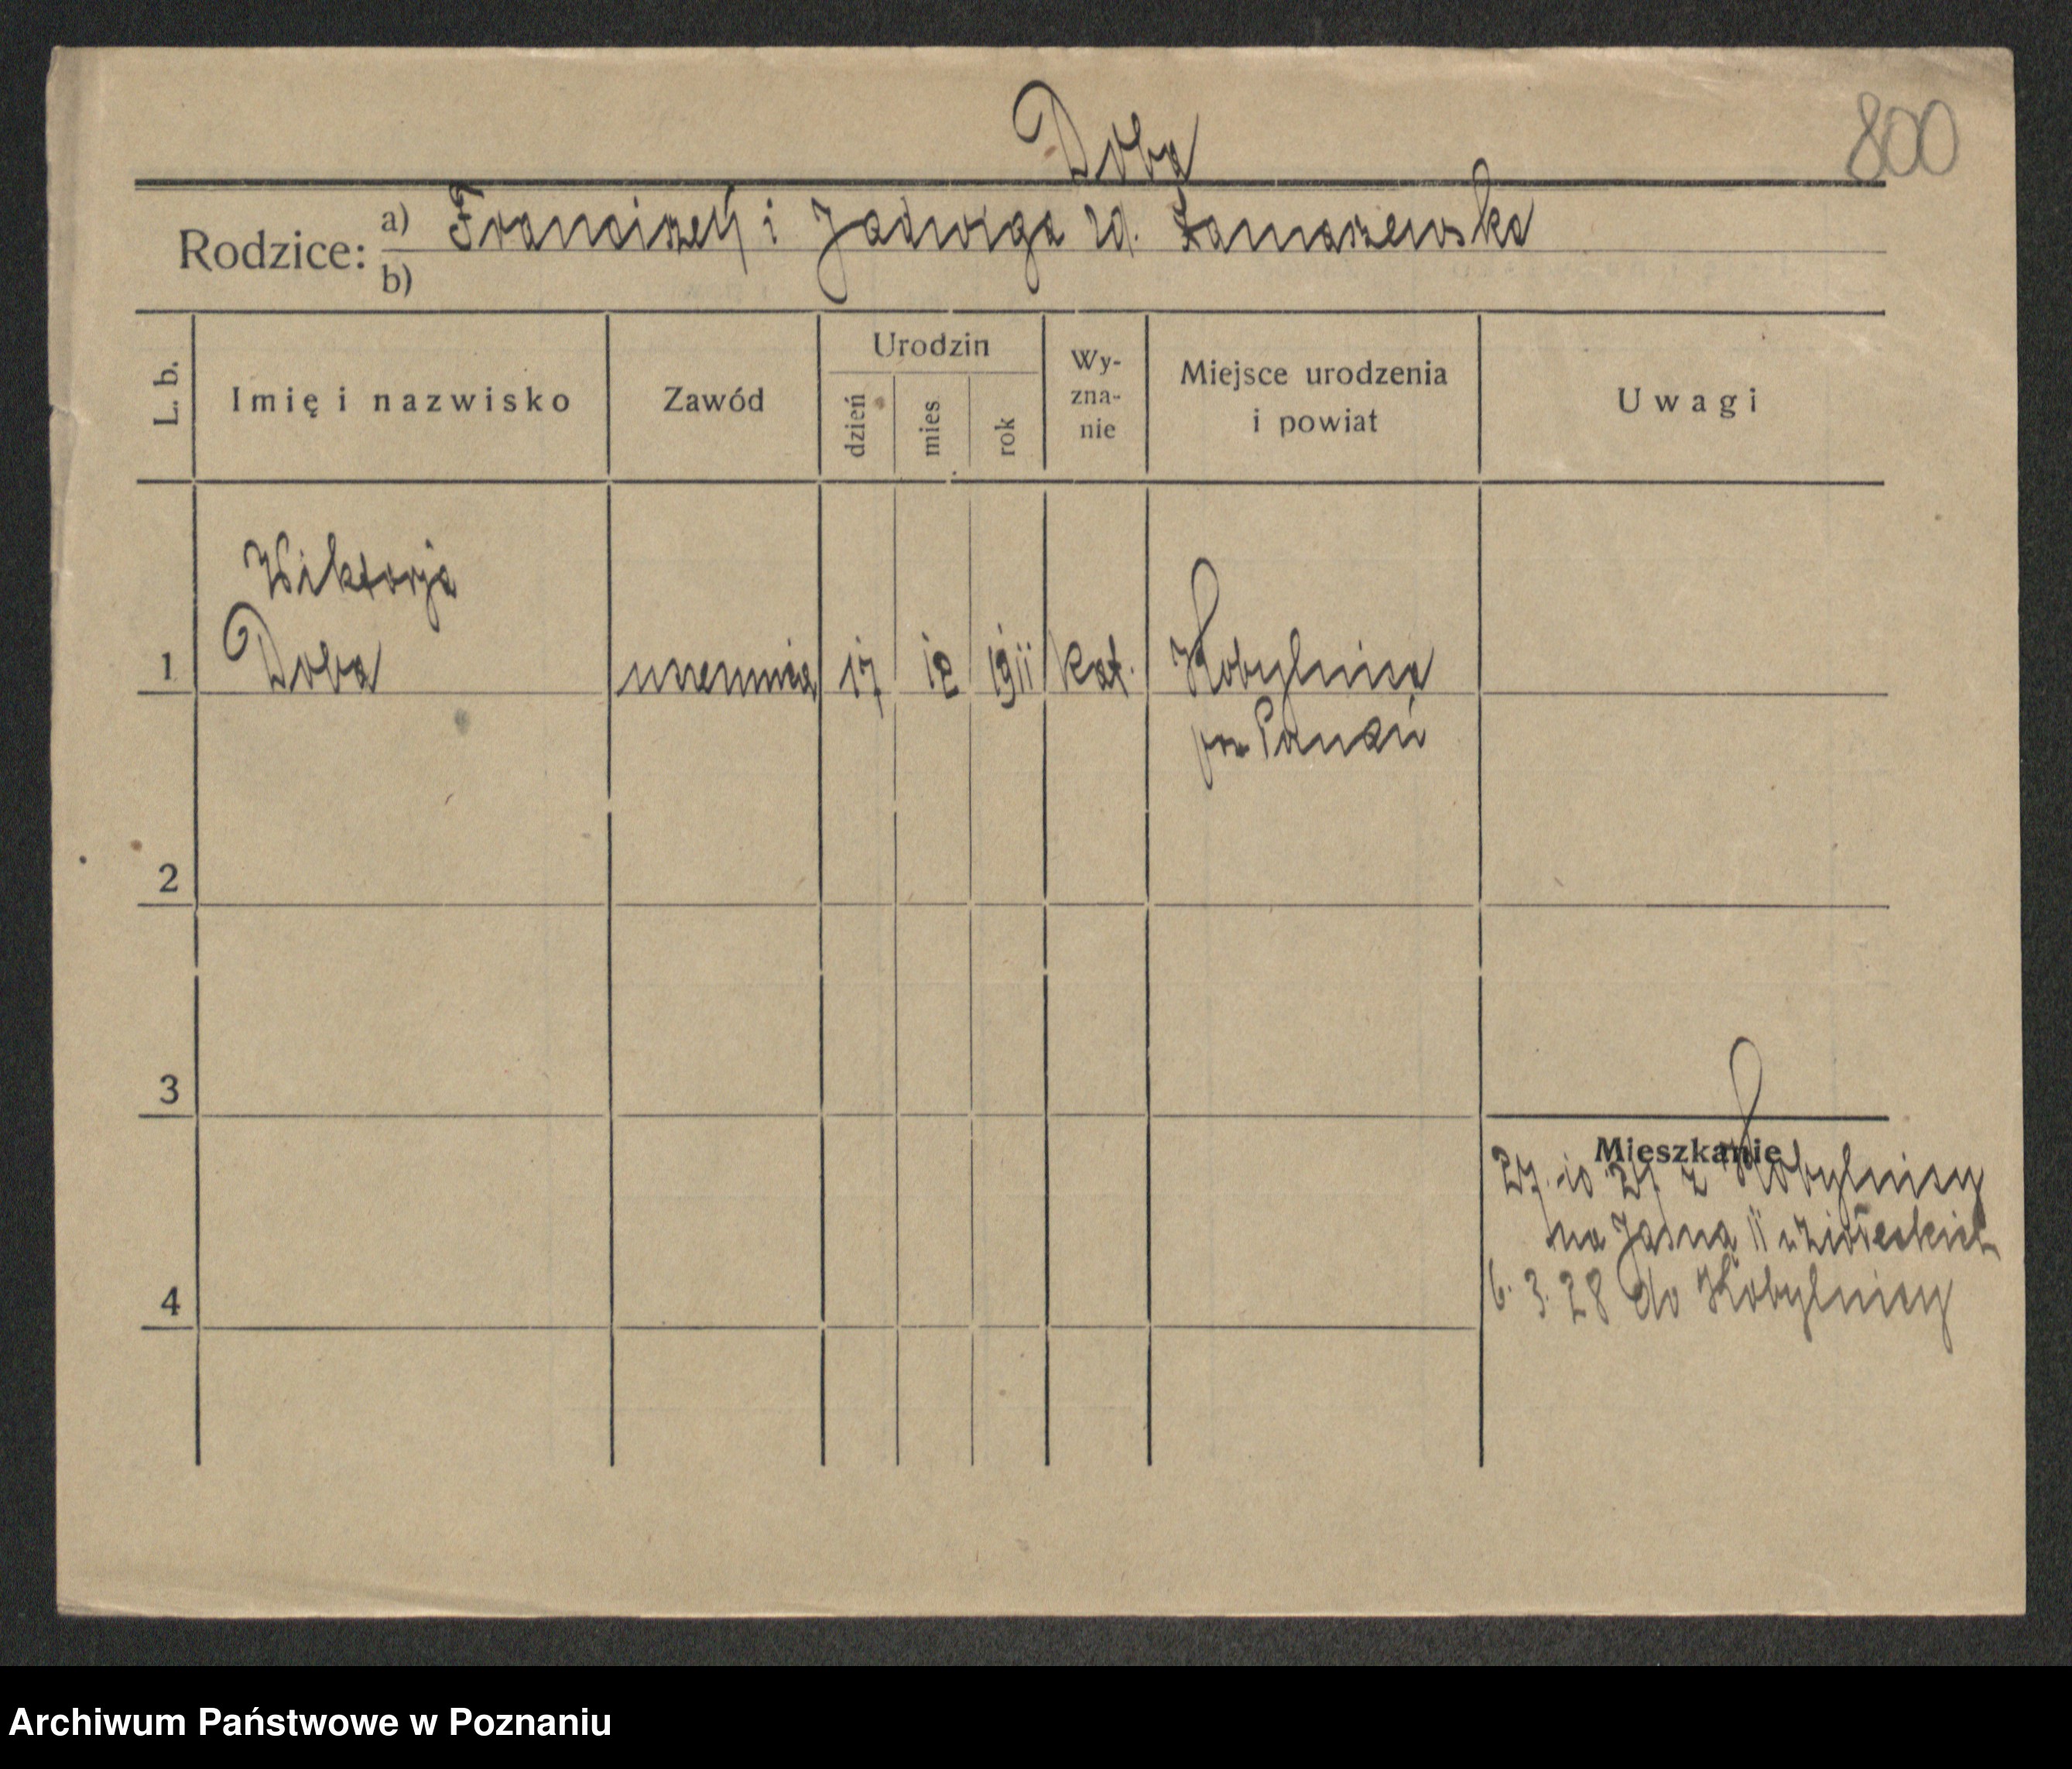 Doba
800
Rodzice: a) Franciszek i Jadwiga zd.
b)
L. b.
Imię i nazwisko
Zawód
Urodzin
dzień
mies
rok
Wy-
zna-
nie
Miejsce urodzenia
i powiat
Uwagi
Wiktorja
1 Doba uczennica 17 12 1911 kat. Kobylnica
pow Poznań
2
3
Mieszkanie
27. 10 27 z Kobylnicy
na Jasna 11 u
4
6. 3. 28 do Kobylnicy
Archiwum Państwowe w Poznaniu